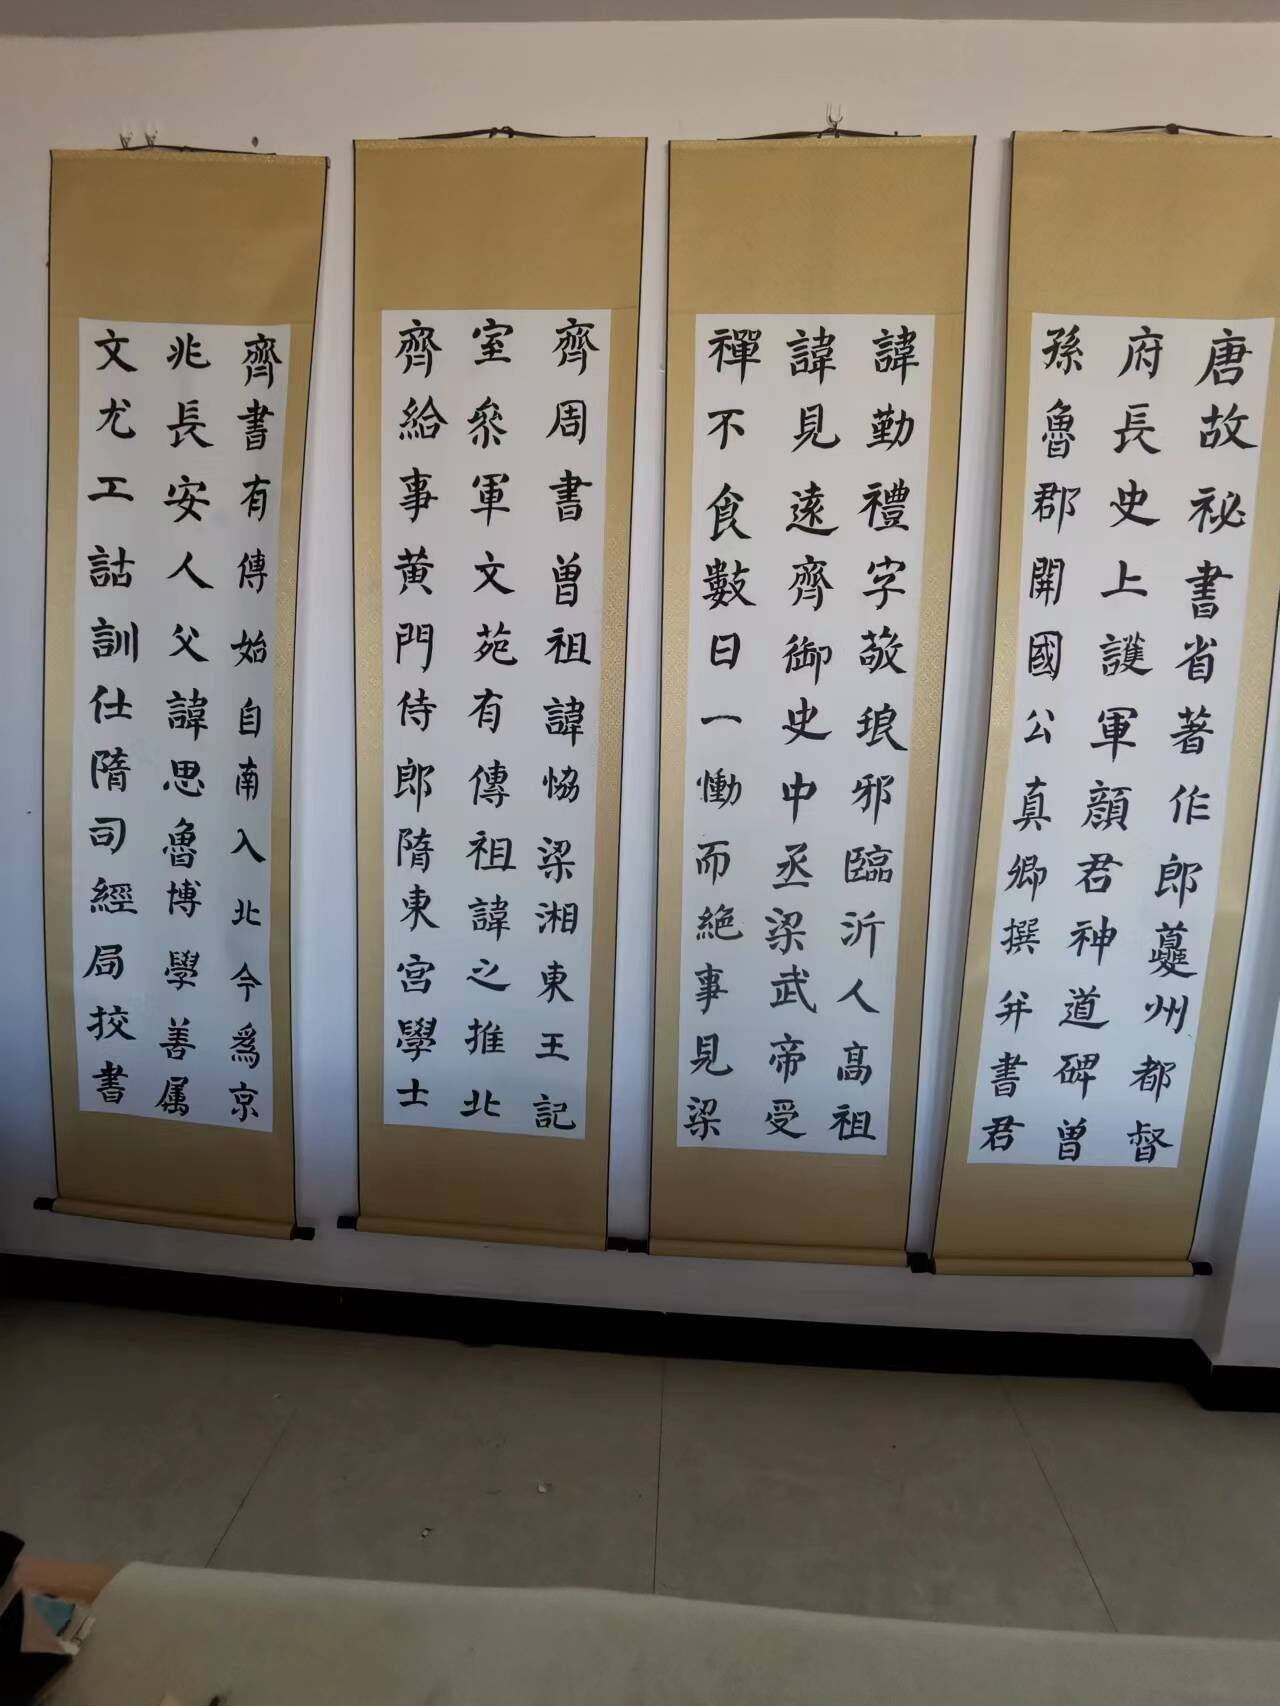 唐故祕書省著作郎夔州都督
府長史上護軍顔君神道碑曽
孫魯郡開國公真卿撰并書君
諱勤禮字敬琅邪臨沂人高祖
諱見遠齊御史中丞梁武帝受
禪不食數日一慟而絶事見梁
齊周書曽祖諱恊梁湘東王記
室叅軍文苑有傳祖諱之推北
齊給事黄門侍郎隋東宫學士
齊書有傳始自南入北今爲京
兆長安人父諱思魯博學善属
文尤工詁訓仕隋司經局挍書